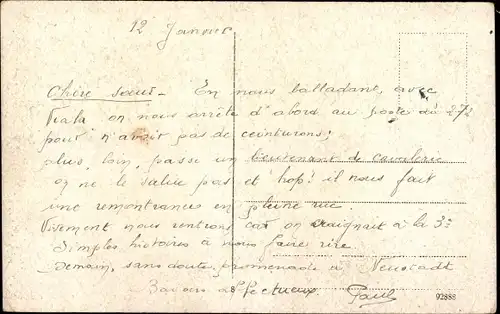 12 Janvier
Chère sœur - En nous balladant, avec
Viala on nous arrête d'abord au poste du 272
pour n'avoir pas de ceinturons;
plus loin, passe un lieutenant de cavalerie
on ne le salue pas et hop! il nous fait
une remontrance en pleine rue.
Vivement nous rentrons car on craignait à la 3e
Simples histoires à nous faire rire
Demain, sans doute, promenade à Neustadt
Baisers affectueux. Paul
8
92888